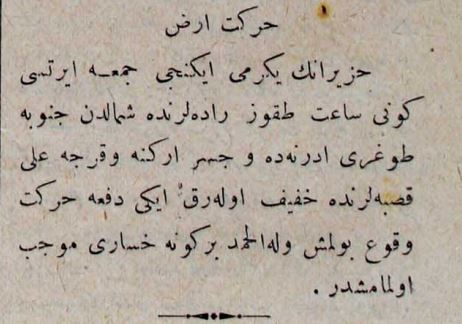 حرکت ارض
حزیرانك یکرمی ایکنجی جمعه ایرتسی
کونی ساعت طقوز راده‌لرنده شمالدن جنوبه
طوغری ادرنه‌ده و جسر ارکنه وقرجه علی
قصبه‌لرنده خفیف اوله‌رق ایکی دفعه حرکت
وقوع بولمش وله‌الحمد برکونه خساری موجب
اولمامشدر .